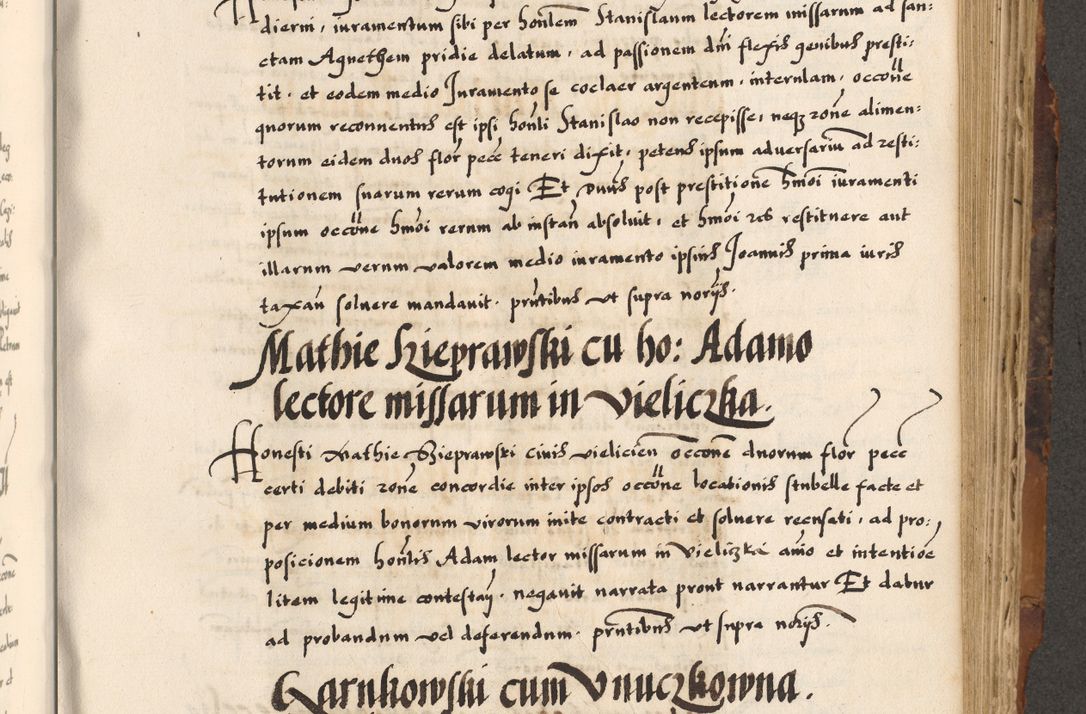 dierni, iuramentum sibi per honlem Stanislaum lectorem missarum ad san:
ctam Agnethem pridie delatum, ad passionem dni flexis genibus presti:
tit, et eodem medio Iuramento se coclaer argenteum, internlam, occone
quorum reconuentus est ipsi honli Stanislao non recepisse, neqz rone alimen:
torum eidem duos flor pecc teneri dixit, petens ipsum adversariu ad resti:
tutionem suarum rerum cogi Et Dnus post prestitione hmoi iuramenti
ipsum occone hmoi rerum ab instan absoluit, et hmoi res restituere aut
illarum verum valorem medio iuramento ipsius Joannis prima iuris
taxan soluere mandauit. prntibus vt supra norijs.
Mathie Szieprawski cu ho: Adamo
lectore missarum in Vieliczka.
Honesti Mathie Szieprawski ciuis vielicien occone duorum flor pecc
certi debiti rone concordie inter ipsos occone locationis stubelle facte et
per medium bonorum virorum inite contracti et soluere recusati, ad pro:
posicionem honlis Adam lector missarum in Vieliczka aio et intentioe
litem legitime contestan, negauit narrata prout narrantur Et datur
ad probandum vel deferendum. prntibus vt supra norijs.
Garnkowski cum Vnuczkowna.